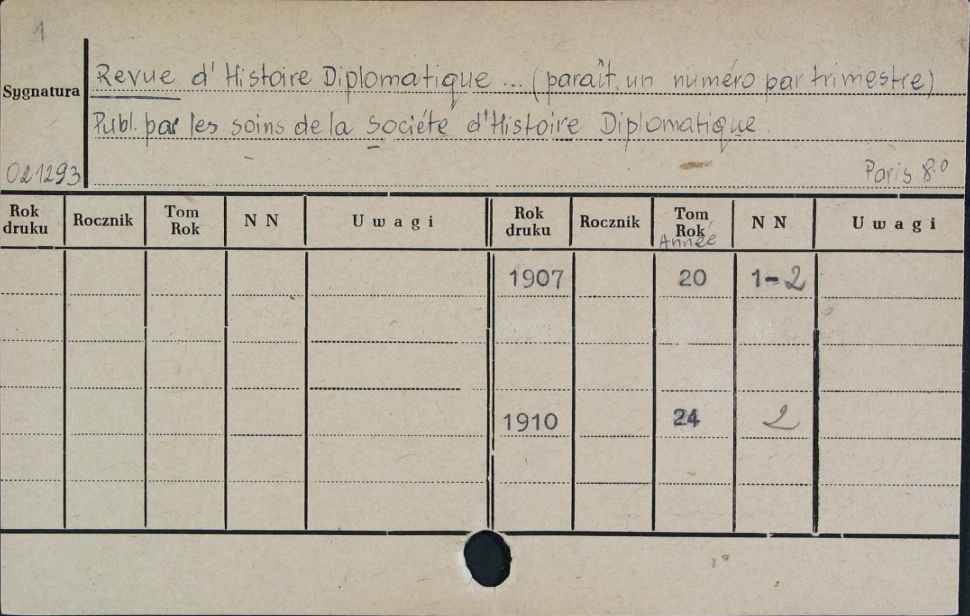 1
Revue d'Histoire Diplomatique ... (paraît un numéro par trimestre)
Sygnatura
Publ. par les soins de la Société d'Histoire Diplomatique
021293
Paris 8º
Rok druku Rocznik Tom Rok N N Uwagi Rok druku Rocznik Tom Rok Année N N Uwagi
1907 20 1-2
1910 24 2